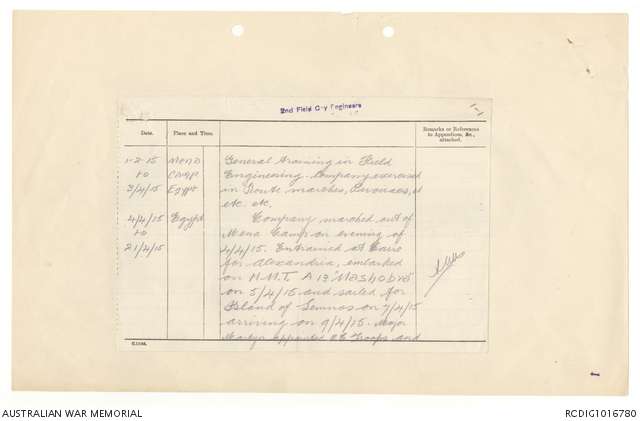 2nd Field Coy Engineers
1-1
Date. Place and Time. Remarks or References to Appendices, &c., attached.
1-2-15 Mena General training in Field
to Camp Engineering. Company exercised
3/4/15 Egypt in Route marches, Bivouacs, et
etc. etc.
4/4/15 Egypt Company marched out of
to Mena Camp on evening of
21/4/15 4/4/15. Entrained at Cairo
for Alexandria, embarked
on H.M.T. A 13 "Mashobra"
on 5/4/15 and sailed for
Island of Lemnos on 7/4/15
arriving on 9/4/15. Major
Martyn appointed OC Troops and
1
AUSTRALIAN WAR MEMORIAL
RCDIG1016780